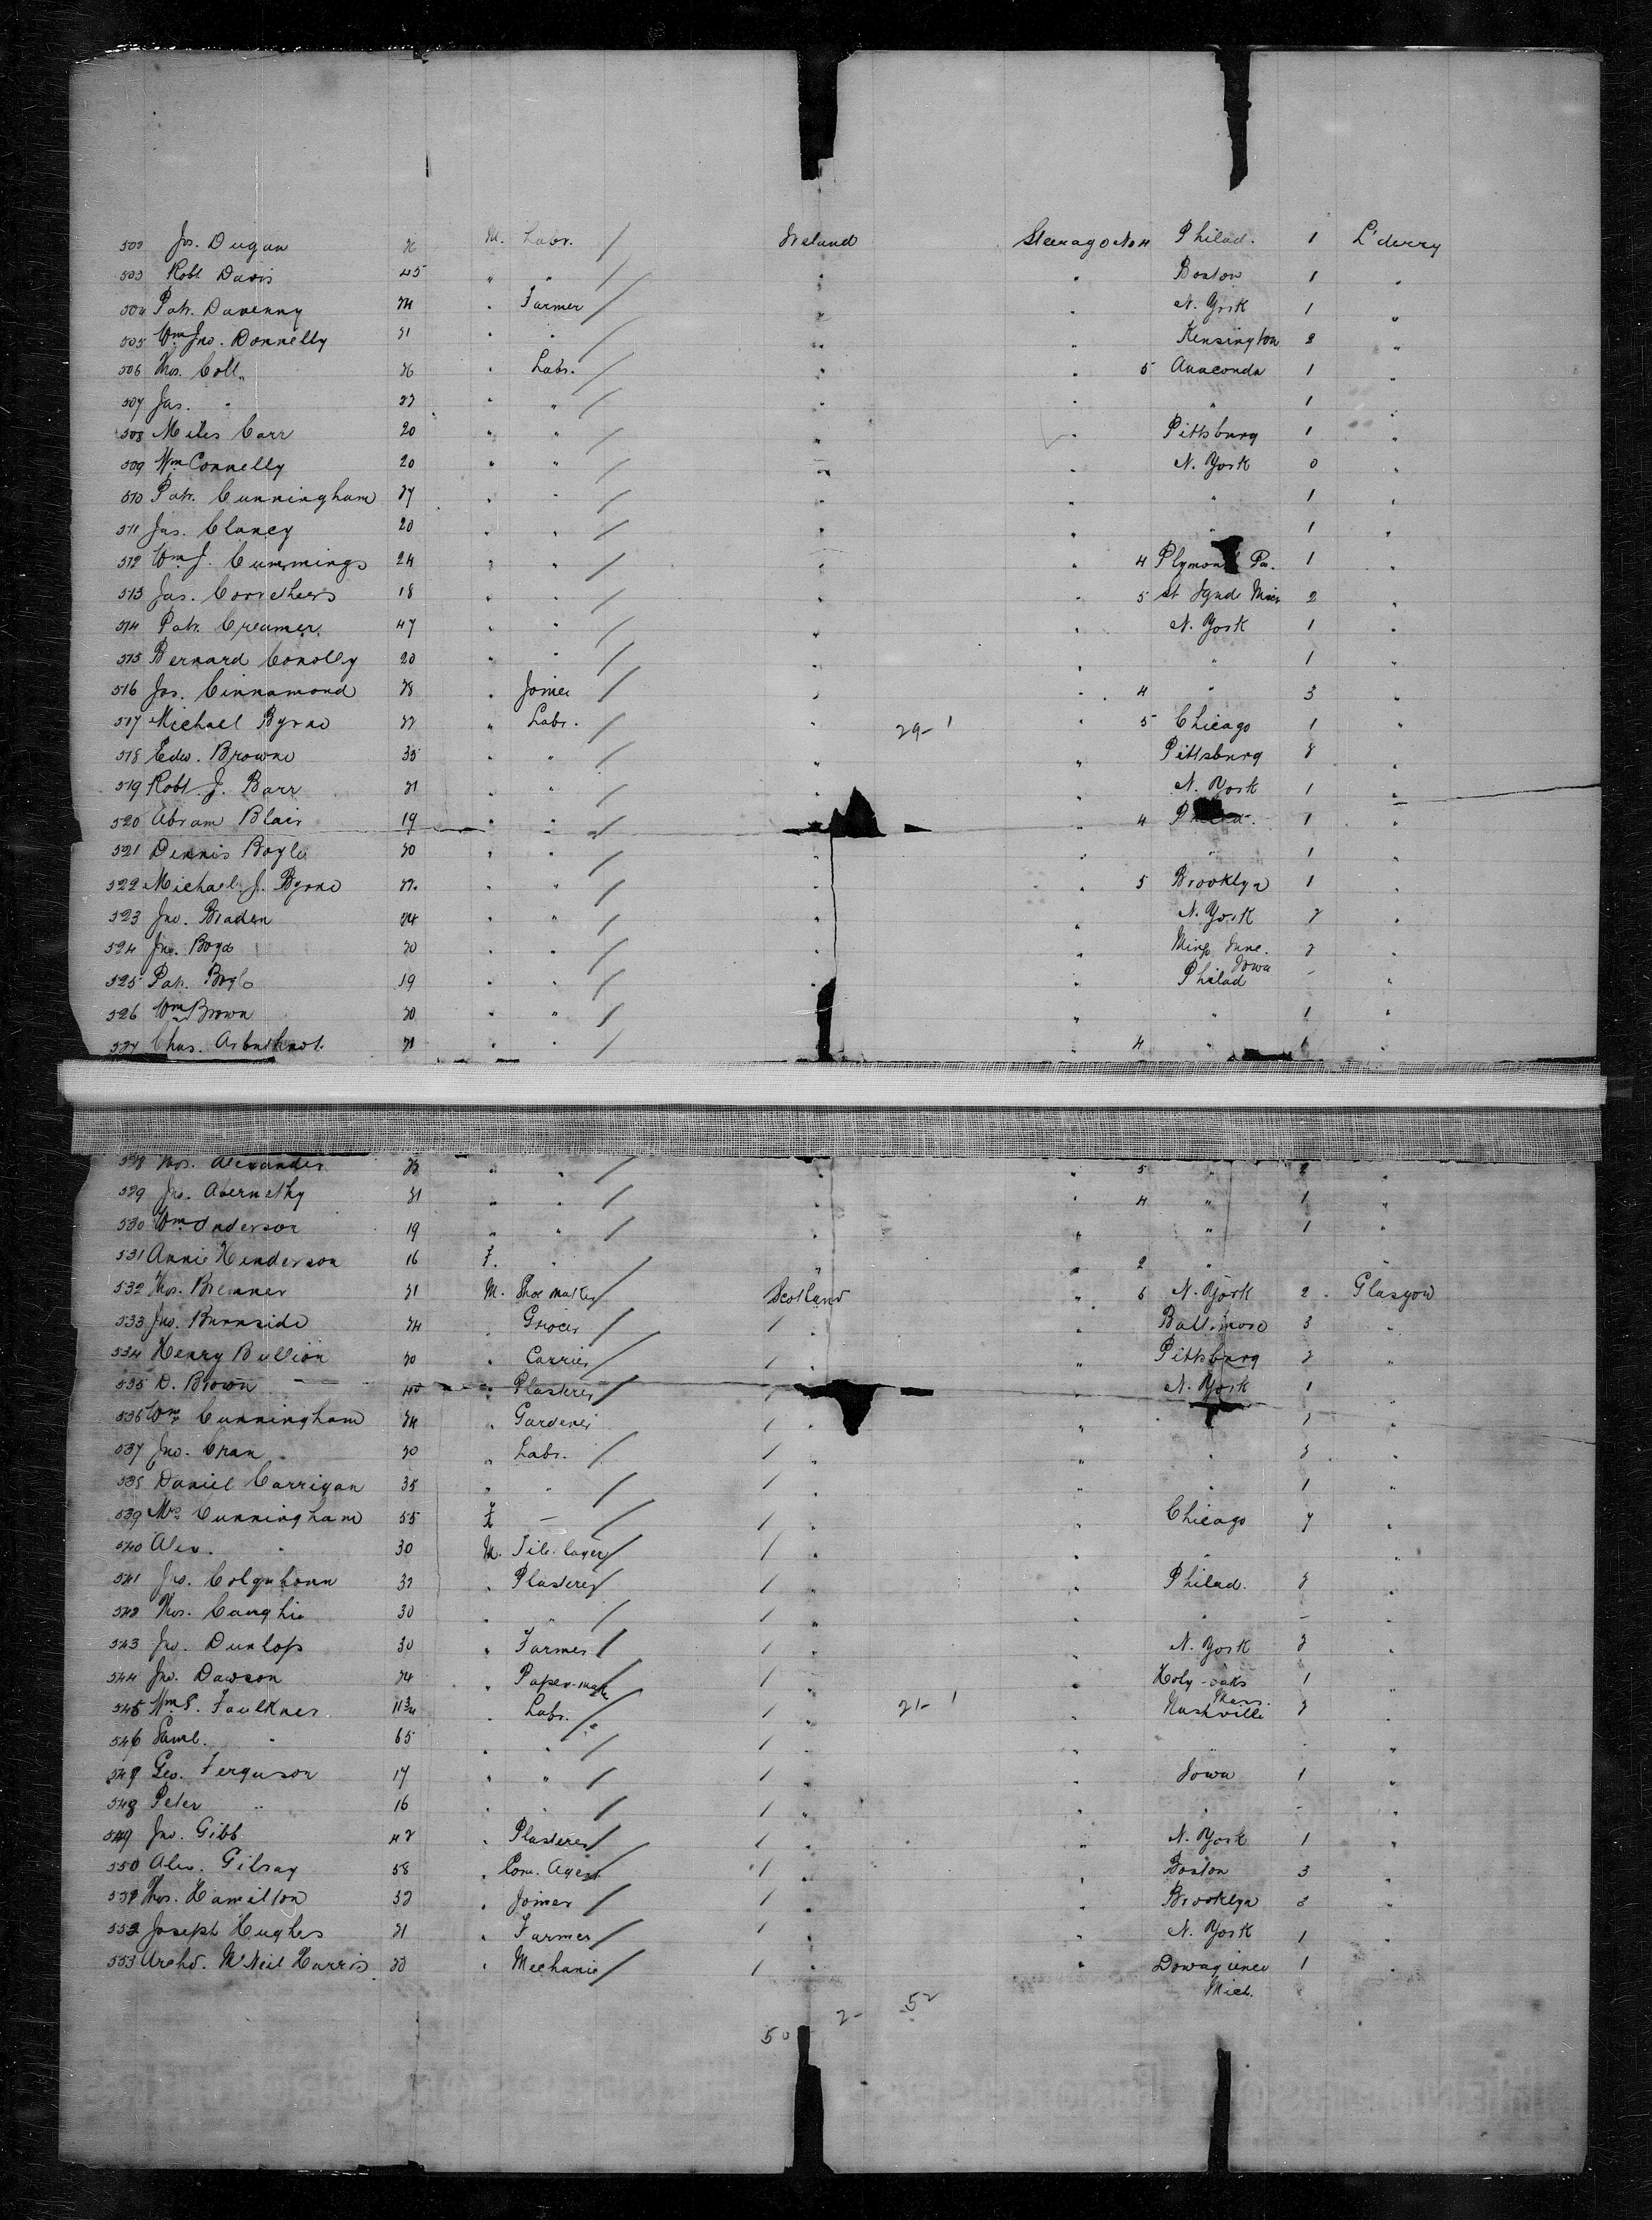 502 Jos. Dugan 26 M. Labr. / Ireland Steerage No 4 Philad. 1 L'derry
503 Robt Davis 45 " " / " " Boston 1 "
504 Patr. Davenny 24 " Farmer / " " N. York 1 "
505 Wm Jno. Donnelly 21 " " / " " Kensington 2 "
506 Thos. Coll 26 " Labr. / " " 5 Anaconda 1 "
507 Jas. " 22 " " / " " " 1 "
508 Miles Carr 20 " " / " " Pittsburg 1 "
509 Wm Connelly 20 " " / " " N. York 0 "
510 Patr. Cunningham 27 " " / " " " 1 "
511 Jas. Clancy 20 " " / " " " 1 "
512 Wm J. Cummings 24 " " / " " 4 Plymouth Pa. 1 "
513 Jas. Correthers 18 " " / " " 5 St 2 "
514 Patr. Creamer 47 " " / " " N. York 1 "
515 Bernard Conolly 20 " " / " " " 1 "
516 Jos. Cinnamond 28 " Joiner / " " 4 " 3 "
517 Michael Byrne 22 " Labr. / " 29- 1 " 5 Chicago 1 "
518 Edw. Browne 35 " " / " " Pittsburg "
519 Robt. J. Barr 21 " " / " " N. York 1 "
520 Abram Blair 19 " " / " " 4 1 "
521 Dennis Boyle 20 " " / " " " 1 "
522 Michael J. Byrne 22 " " / " " 5 Brooklyn 1 "
523 Jno. Braden 24 " " / " " N. York 2 "
524 Jno. Boyd 20 " " / " " Mingo Junc. 2 "
Iowa
525 Patr. Boyle 19 " " / " " Philad - "
526 Wm Brown 20 " " / " " " 1 "
527 Chas. Arbuthnot 21 " " / " " 4 " 1 "
528 Thos. Alexander " " / " " 5 " "
529 Jno. Abernethy 21 " " / " " 4 " 1 "
530 Wm Anderson 19 " " / " " " 1 "
531 Annie Henderson 16 F. " " " 2 " "
532 Thos. Bremner 21 M. Shoemaker / Scotland " 6 N. York 2 Glasgow
533 Jno. Burnside 24 " Grocer / / " " Baltimore 3 "
534 Henry Bullion 20 " Carrier / / " " Pittsburg 2 "
535 D. Brown 40 " Plasterer / / " N. York 1 "
536 Wm Cunningham 24 " Gardener / " " " 2 "
537 Jno. Cran 20 " Labr. / / " " " 2 "
538 Daniel Carrigan 35 " " / / " " " 1 "
539 Mrs Cunningham 55 F - / / " " Chicago "
540 Alex. " 30 M. Tile layer / / " " " "
541 Jno. Colquhoun 32 " Plasterer / / " " Philad. 2 "
542 Thos. Caughie 30 " " / / " " " - "
543 Jno. Dunlop 30 " Farmer / / " " N. York 2 "
544 Jno. Dawson 24 " Paper-maker / / " " Holy-oaks 1 "
Mass.
545 Wm S. Faulkner " Labr. / / " 21- 1 " Nashville 2 "
546 Saml. " 65 " " / / " " " "
547 Geo. Ferguson 17 " " / / " " Iowa 1 "
548 Peter " 16 " " / / " " " - "
549 Jno. Gibb 42 " Plasterer / / " " N. York 1 "
550 Alex. Gilray 58 " Com. Agent / / " " Boston 3 "
551 Thos. Hamilton 32 " Joiner / / " " Brooklyn "
552 Joseph Hughes 21 " Farmer / / " " N. York 1 "
553 Archd. McNeil Harris " Mechanic / / " " Dowagiac 1 "
Mich.
50 2- 52